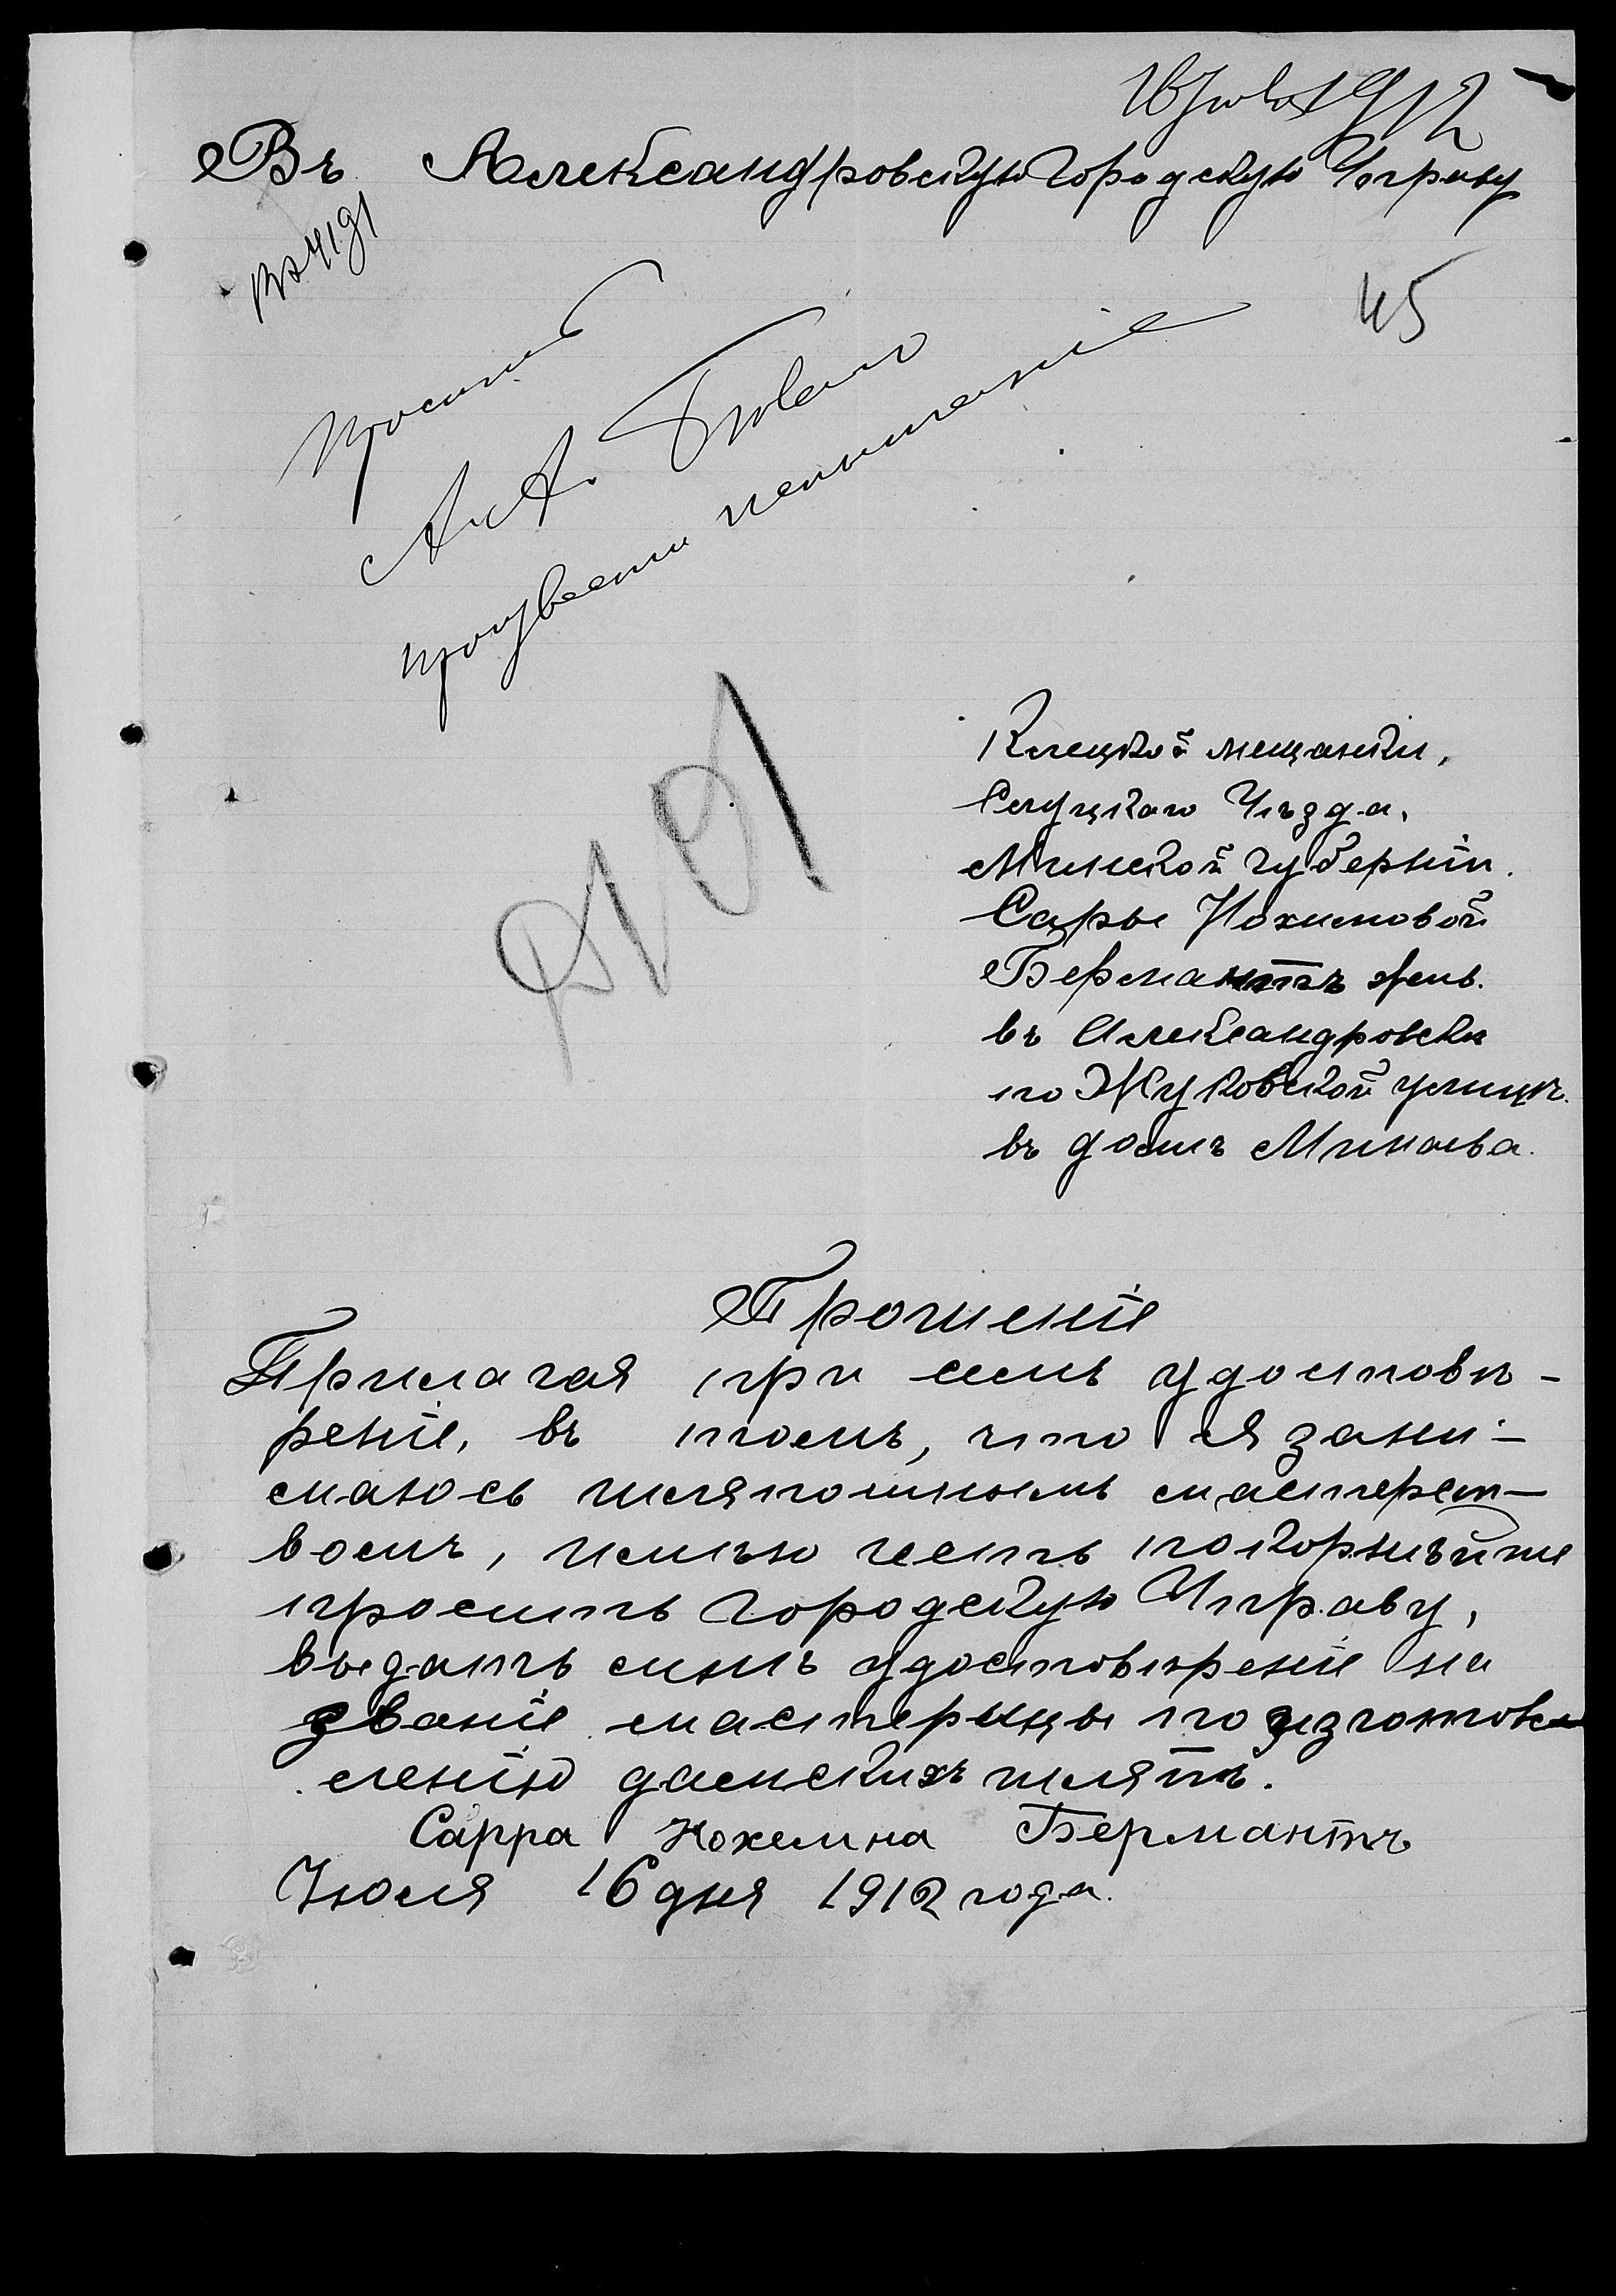 16 Іюля 912
Въ Александровскую Городскую Управу
45
просить
А. А.
произвести испытаніе
Клецкой мещанки,
Слуцкаго Уѣзда,
Минской губерніи.
Сары Нохимовой
Бермантъ жив.
въ Александровскѣ
по Жуковской улицѣ.
въ домѣ Минаева.
Прошеніе
Прилагая при семъ удостовѣ-
реніе, въ томъ, что я зани-
маюсь шляпошнымъ мастерст-
вомъ, имѣю честь покорнѣйше
просить Городскую Управу,
выдать мнѣ удостовѣреніе на
званіе мастерицы по изготов-
ленію дамскихъ шляпъ.
Сарра Нохемна Бермантъ
Іюля 16 дня 1912 года.